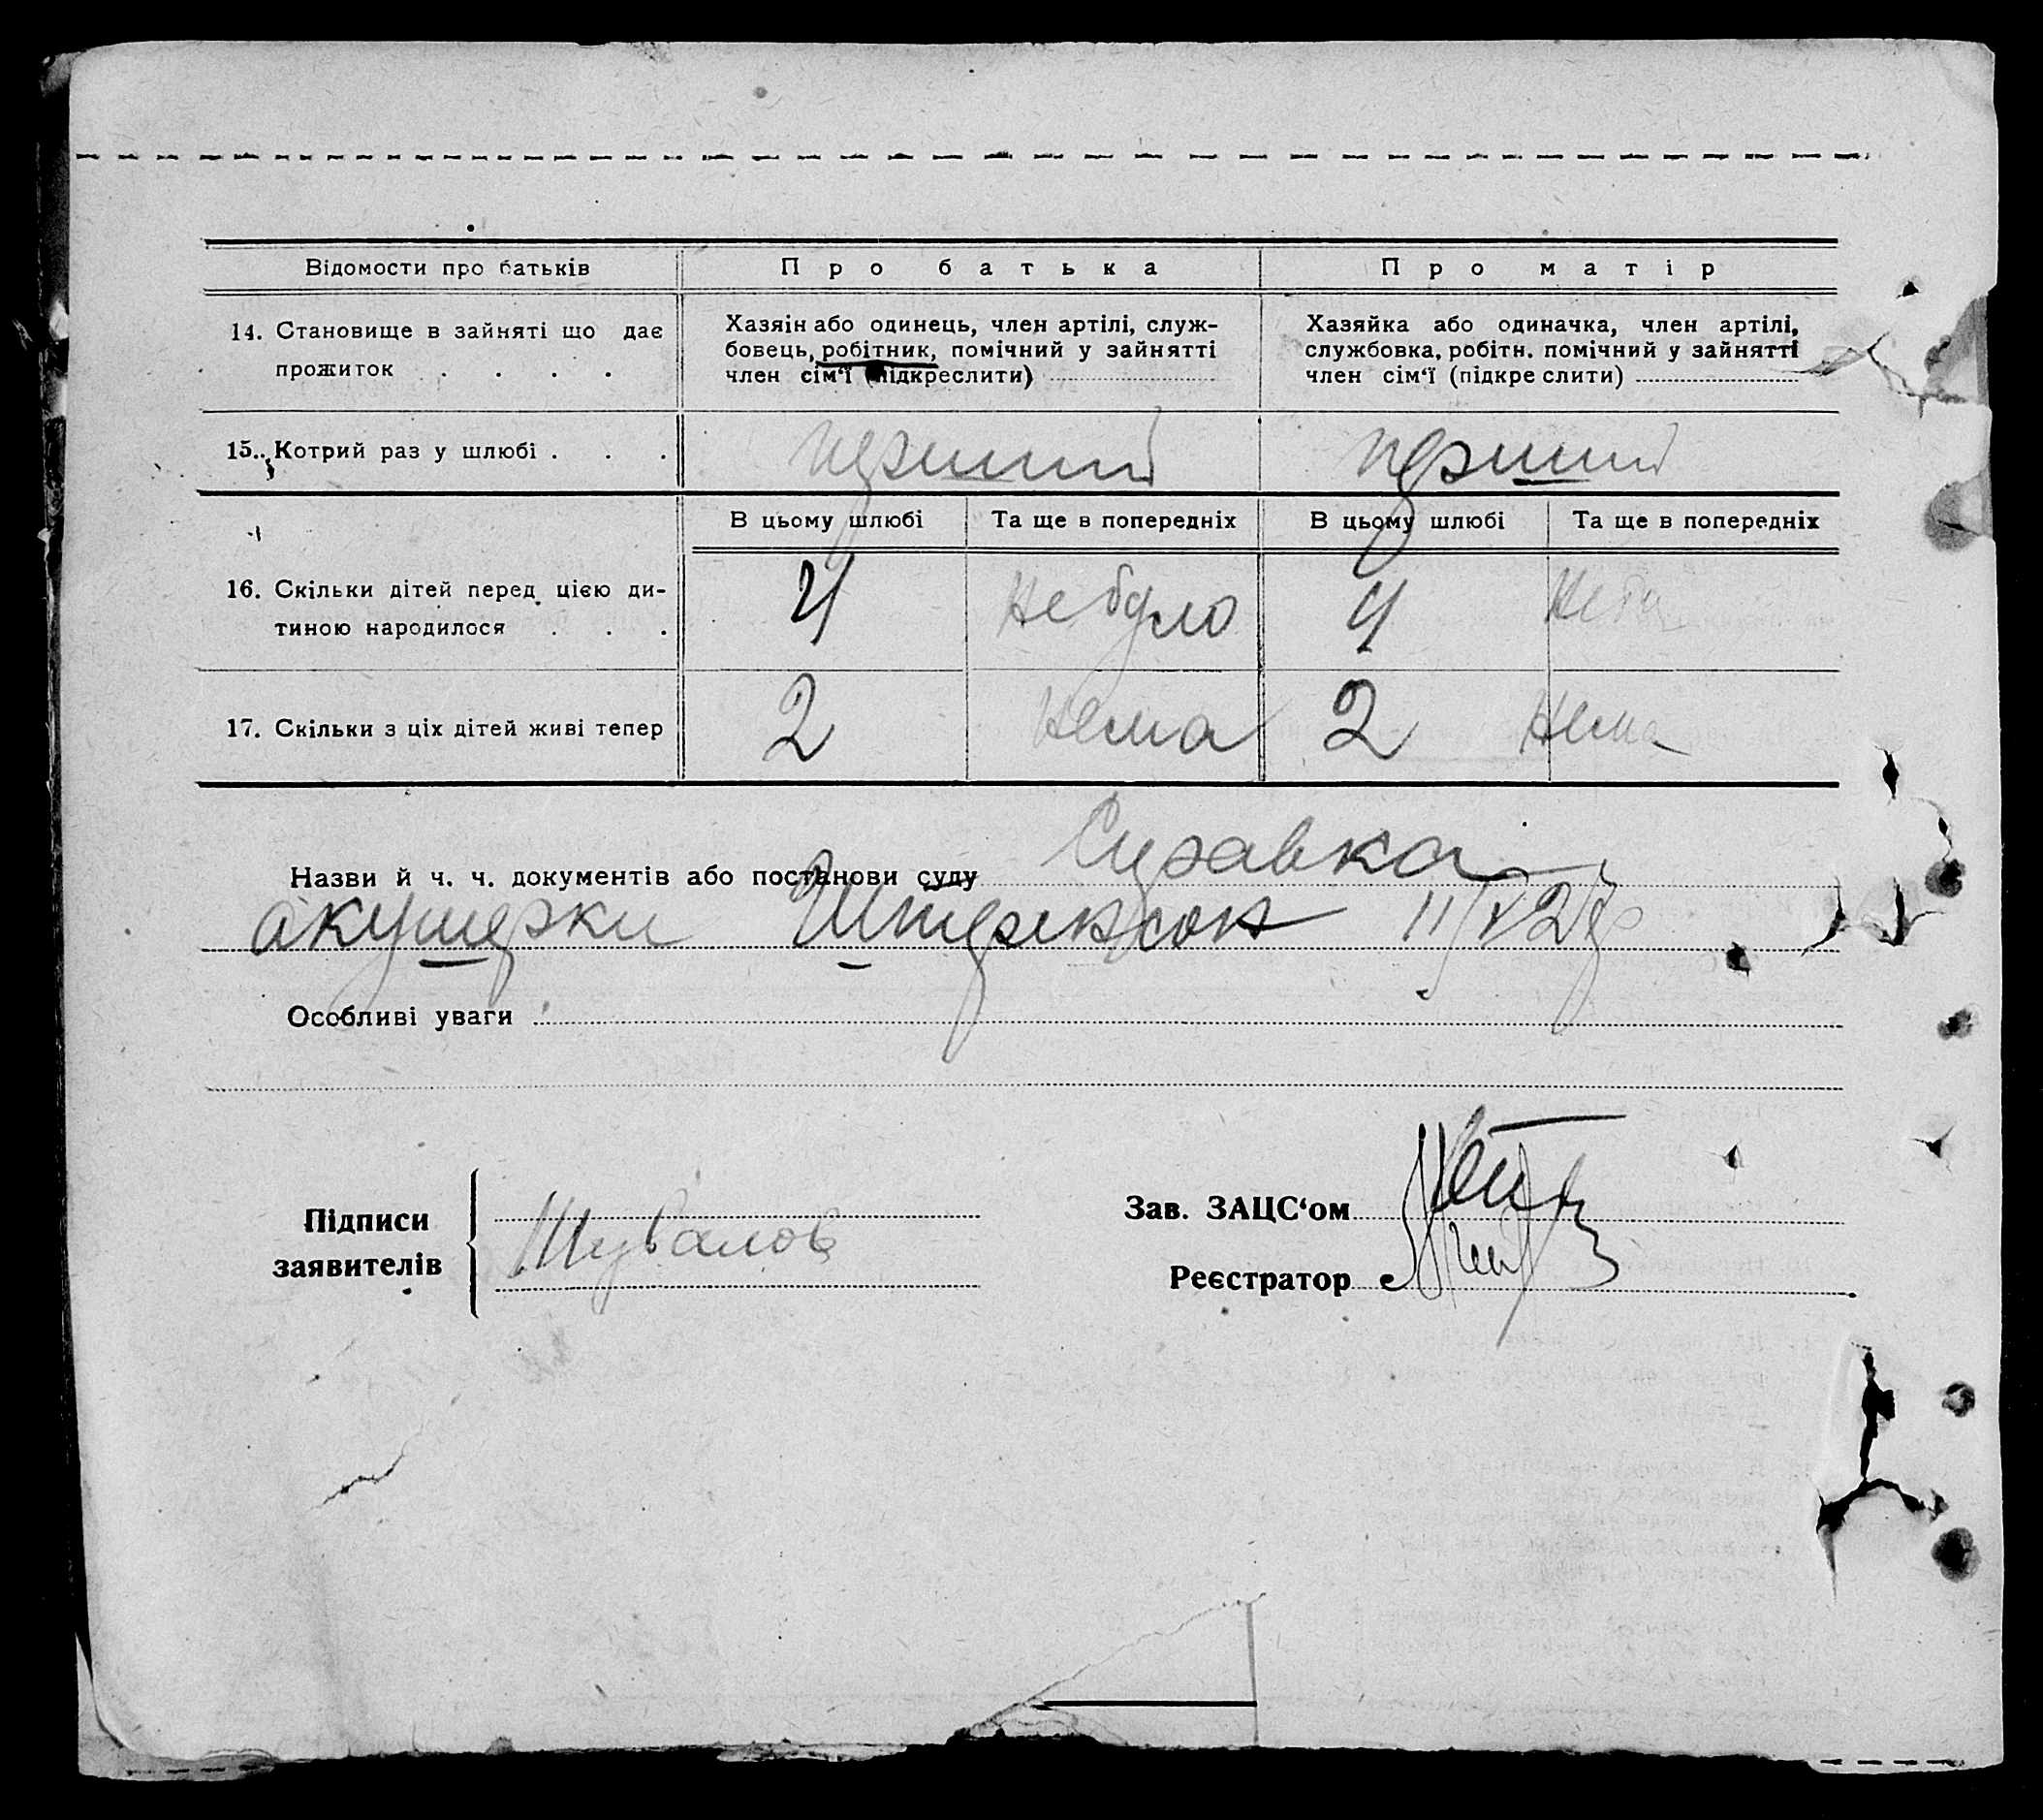 Відомости про батьків
Про батька
Про матір
14. Становище в зайняті що дає
прожиток . . . .
Хазяін або одинець, член артілі, служ-
бовець, робітник, помічний у зайнятті
член сім‘ї (підкреслити)
Хазяйка або одиначка, член артілі,
службовка, робітн. помічний у зайнятті
член сім‘ї (підкре слити)
15. Котрий раз у шлюбі . . .
перший
перший
В цьому шлюбі
Та ще в попередніх
В цьому шлюбі
Та ще в попередніх
16. Скільки дітей перед цією ди-
тиною народилося . . .
4
Не було
4
17. Скільки з ціх дітей живі тепер
2
Нема
2
Нема
Назви й ч. ч. документів або постанови суду
акушерки
Особливі уваги
Підписи
заявителів
Шувалов
Зав. ЗАЦС‘ом
Реєстратор